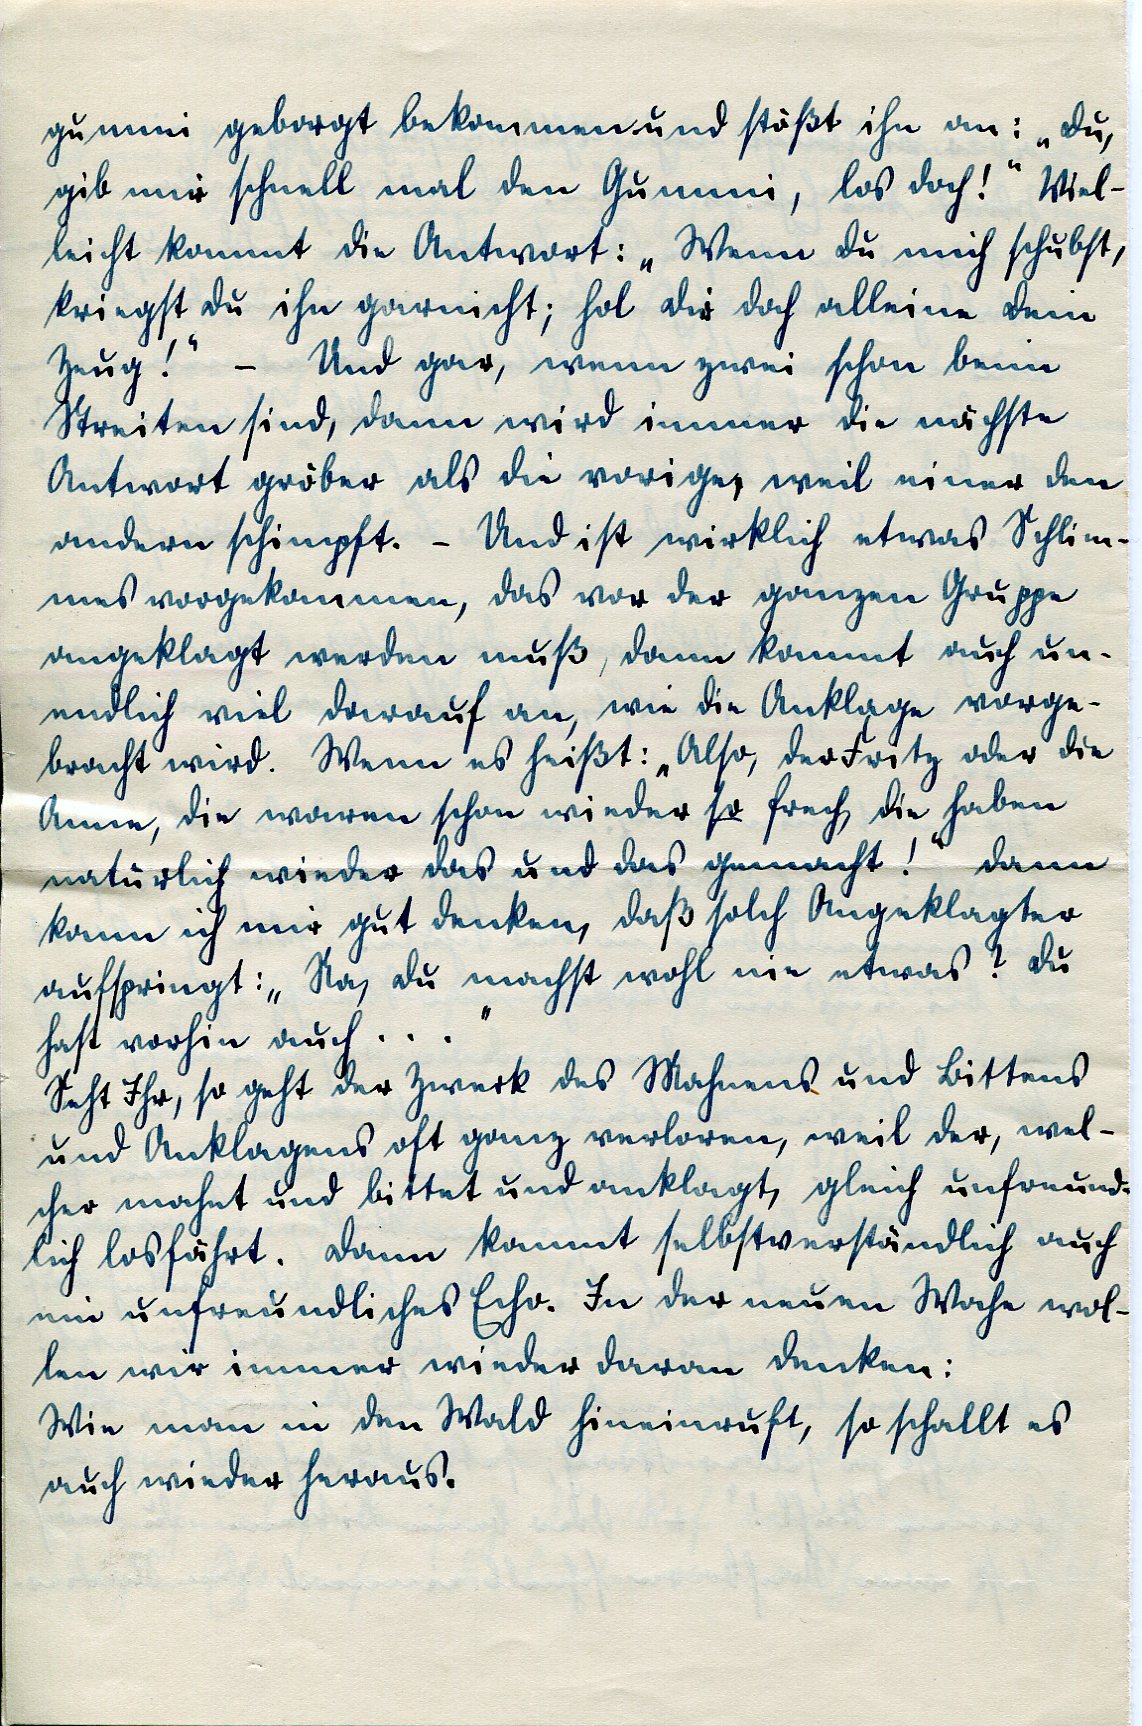 gummi geborgt bekommen und stößt ihn an: „Du,
gib mir schnell mal den Gummi, los doch!“ Viel-
leicht kommt die Antwort: „Wenn du mich schubst,
kriegst du ihn garnicht; hol dir doch alleine dein
Zeug!“ – Und gar, wenn zwei schon beim
Streiten sind, dann wird immer die nächste
Antwort gröber als die vorige, weil einer den
andern schimpft. – Und ist wirklich etwas Schlim-
mes vorgekommen, das vor der ganzen Gruppe
angeklagt werden muß, dann kommt auch un-
endlich viel darauf an, wie die Anklage vorge-
bracht wird. Wenn es heißt: „Also, der Fritz oder die
Anne, die waren schon wieder so frech, die haben
natürlich wieder das und das gemacht!“ dann
kann ich mir gut denken, daß solch Angeklagter
aufspringt: „Na, du machst wohl nie etwas? Du
hast vorhin auch . . . .“
Seht Ihr, so geht der Zweck des Mahnens und Bittens
und Anklagens oft ganz verloren, weil der, wel-
cher mahnt und bittet und anklagt, gleich unfreund-
lich losfährt. Dann kommt selbstverständlich auch
ein unfreundliches Echo. In der neuen Woche wol-
len wir immer wieder daran denken:
Wie man in den Wald hineinruft, so schallt es
auch wieder heraus.